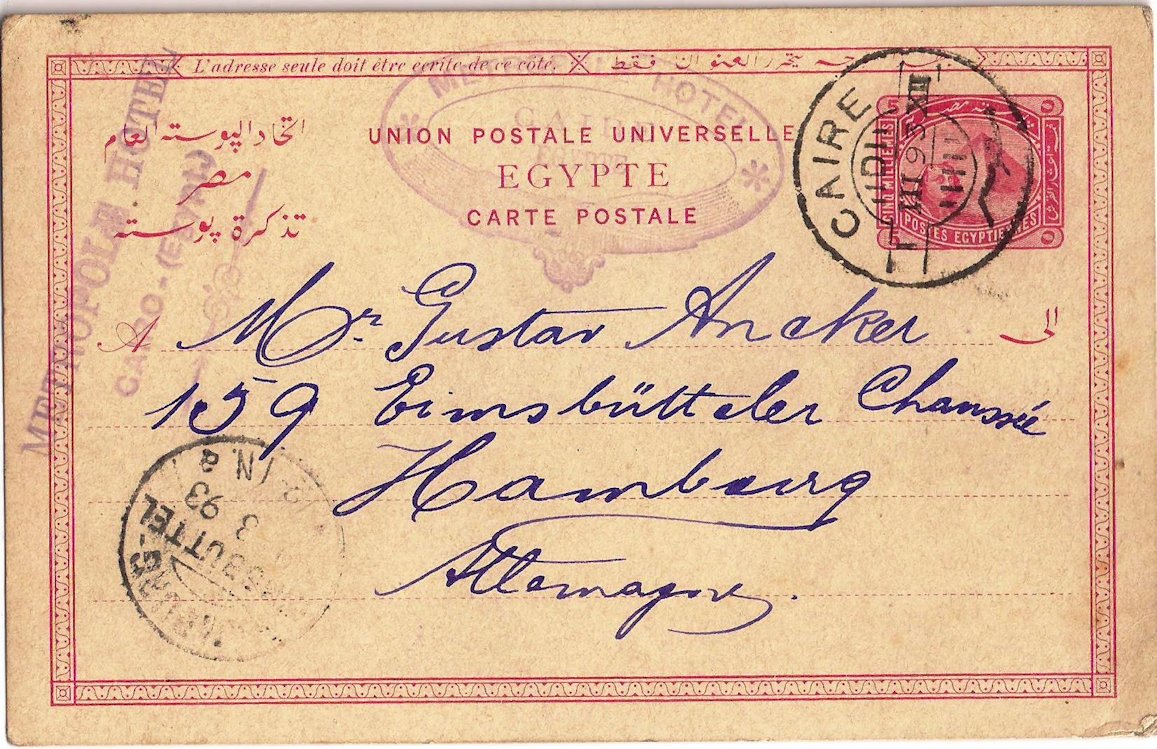 L'adresse seule doit être écrite de ce côté.
فقط
METROPOLE HOTEL
CAIRO-(EGYPT)
HOTEL
CAIRE
اتحاد البوسته العام
مصر
تذكرة بوسته
UNION POSTALE UNIVERSELLE
EGYPTE
CARTE POSTALE
CAIRE
III 93 XII
5
٥
CINQ MILLIEMES
POSTES EGYPTIENNES
5
٥
A
الى
Mr. Gustav Ancker
159 Eimsbütteler Chaussée
Hamburg
Allemagne.
3 93